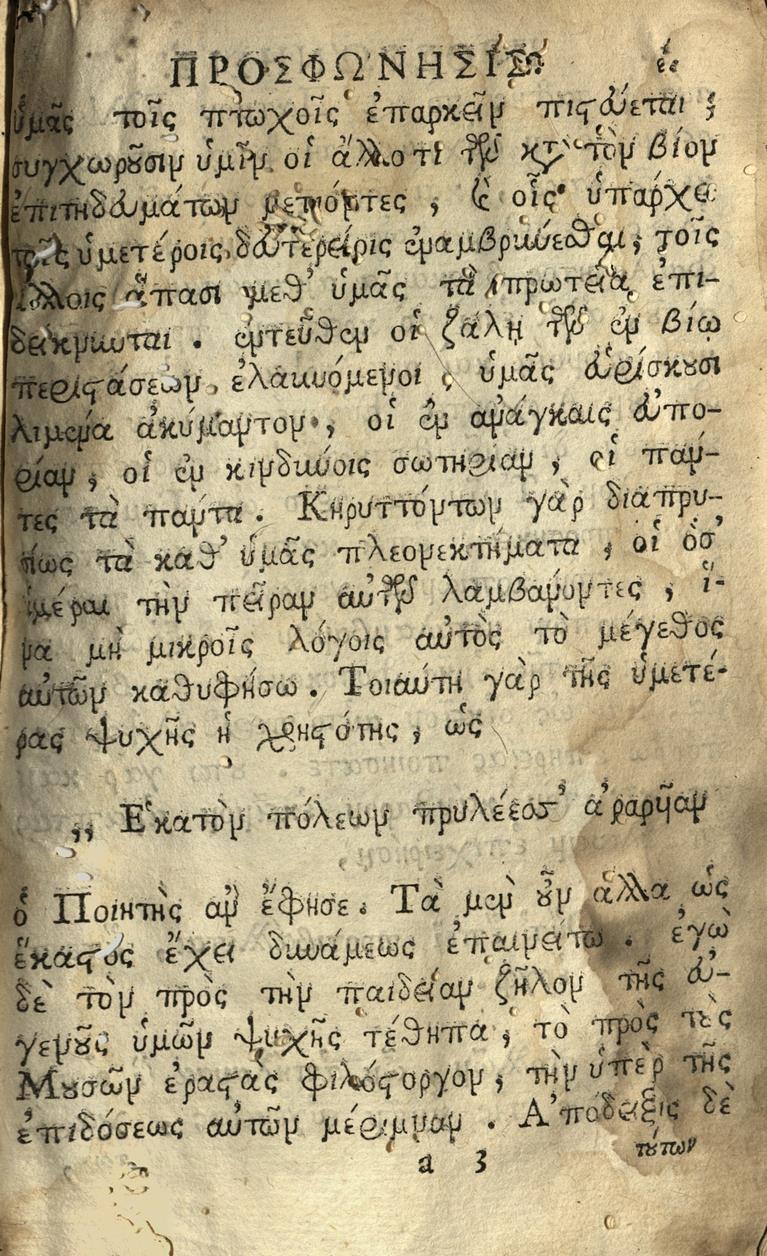 ΠΡΟΣΦΩΝΗΣΙΣ
ὑμᾶς τοῖς πτωχοῖς ἐπαρκεῖν πιστεύεται ;
συγχωροῦσιν ὑμῖν οἱ ἄλλο τι τῶν κατὰ τὸν βίον
ἐπιτηδευμάτων μετιόντες , καὶ οἷς ὑπάρχει
τοῖς ὑμετέροις δευτερείοις ἐναμβρύνεσθαι, τοῖς
ἄλλοις ἅπασι μεθ' ὑμᾶς τὰ πρωτεῖα ἐπι-
δείκνυνται . ἐντεῦθεν οἱ ζάλῃ τῶν ἐν βίῳ
περιστάσεων ἐλαυνόμενοι , ὑμᾶς εὑρίσκουσι
λιμένα ἀκύμαντον , οἱ ἐν ἀνάγκαις εὐπο-
ρίαν , οἱ ἐν κινδύνοις σωτηρίαν , οἱ πάν-
τες τὰ πάντα . Κηρυττόντων γὰρ διαπρυ-
σίως τὰ καθ' ὑμᾶς πλεονεκτήματα , οἱ ὁσ'
ἡμέραι τὴν πεῖραν αὐτῶν λαμβάνοντες , ἵ-
να μὴ μικροῖς λόγοις αὐτὸς τὸ μέγεθος
αὐτῶν καθυφήσω . Τοιαύτη γὰρ τῆς ὑμετέ-
ρας ψυχῆς ἡ χρηστότης , ὡς
,, Ἑκατὸν πόλεων πρυλέεσσ' ἀραρῆαν
ὁ Ποιητὴς ἂν ἔφησε. Τὰ μὲν οὖν ἄλλα ὡς
ἕκαστος ἔχει δυνάμεως ἐπαινείτω . ἐγὼ
δὲ τὸν πρὸς τὴν παιδείαν ζῆλον τῆς εὐ-
γενοῦς ὑμῶν ψυχῆς τέθηπα , τὸ πρὸς τοὺς
Μουσῶν ἐραστὰς φιλόστοργον, τὴν ὑπὲρ τῆς
ἐπιδόσεως αὐτῶν μέριμναν . Ἀπόδειξις δὲ
a 3 τούτων